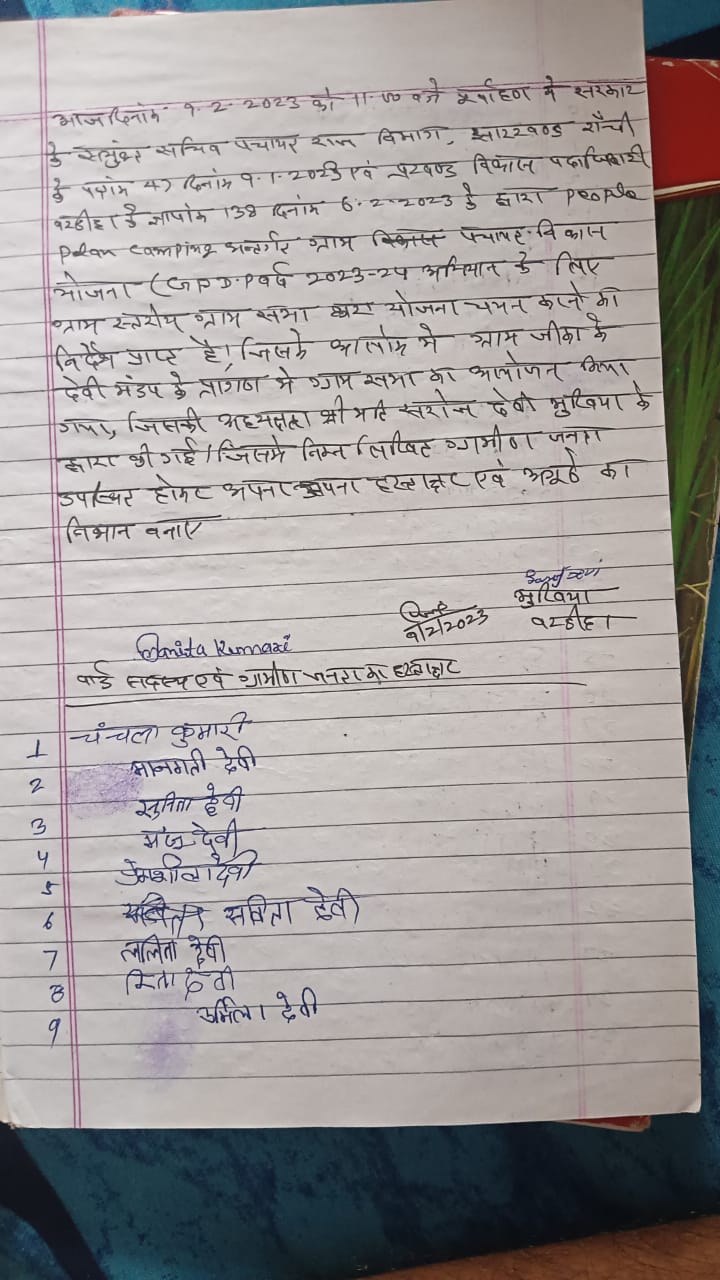 आज दिनांक 9.2.2023 को 11.00 बजे पूर्वाहण मे सरकार
के संयुक्त सचिव पंचायत राज विभाग, झारखण्ड राँची
के पत्रांक 47 दिनांक 9.1.2023 एवं प्रखण्ड विकास पदाधिकारी
बरडीहा के ज्ञापांक 138 दिनांक 6.2.2023 के द्वारा People
Plan Camping अन्तर्गत ग्राम पंचायत विकास
योजना (GPDP वर्ष 2023-24 अभियान के लिए
ग्राम स्तरीय ग्राम सभा द्वारा योजना चयन करने का
निर्देश प्राप्त है, जिसके आलोक मे ग्राम जीका के
देवी मंडप के प्रांगण मे ग्राम सभा का आयोजन किया
गया, जिसकी अध्यक्षता श्री मति सरोज देवी मुखिया के
द्वारा की गई। जिसमे निम्न लिखित ग्रामीण जनता
उपस्थित होकर अपना-अपना हस्ताक्षर एवं अगूठे का
निशान बनाए
मुखिया
9/2/2023 बरडीहा
Kumari
वार्ड सदस्य एवं ग्रामीण जनता का हस्ताक्षर
1 चंचला कुमारी
2 मानमती देवी
3 सुनिता देवी
4 मंजु देवी
5 प्रेमशीला देवी
6 सबिता देवी
7 ललिता देवी
8 रिता देवी
9 उर्मिला देवी